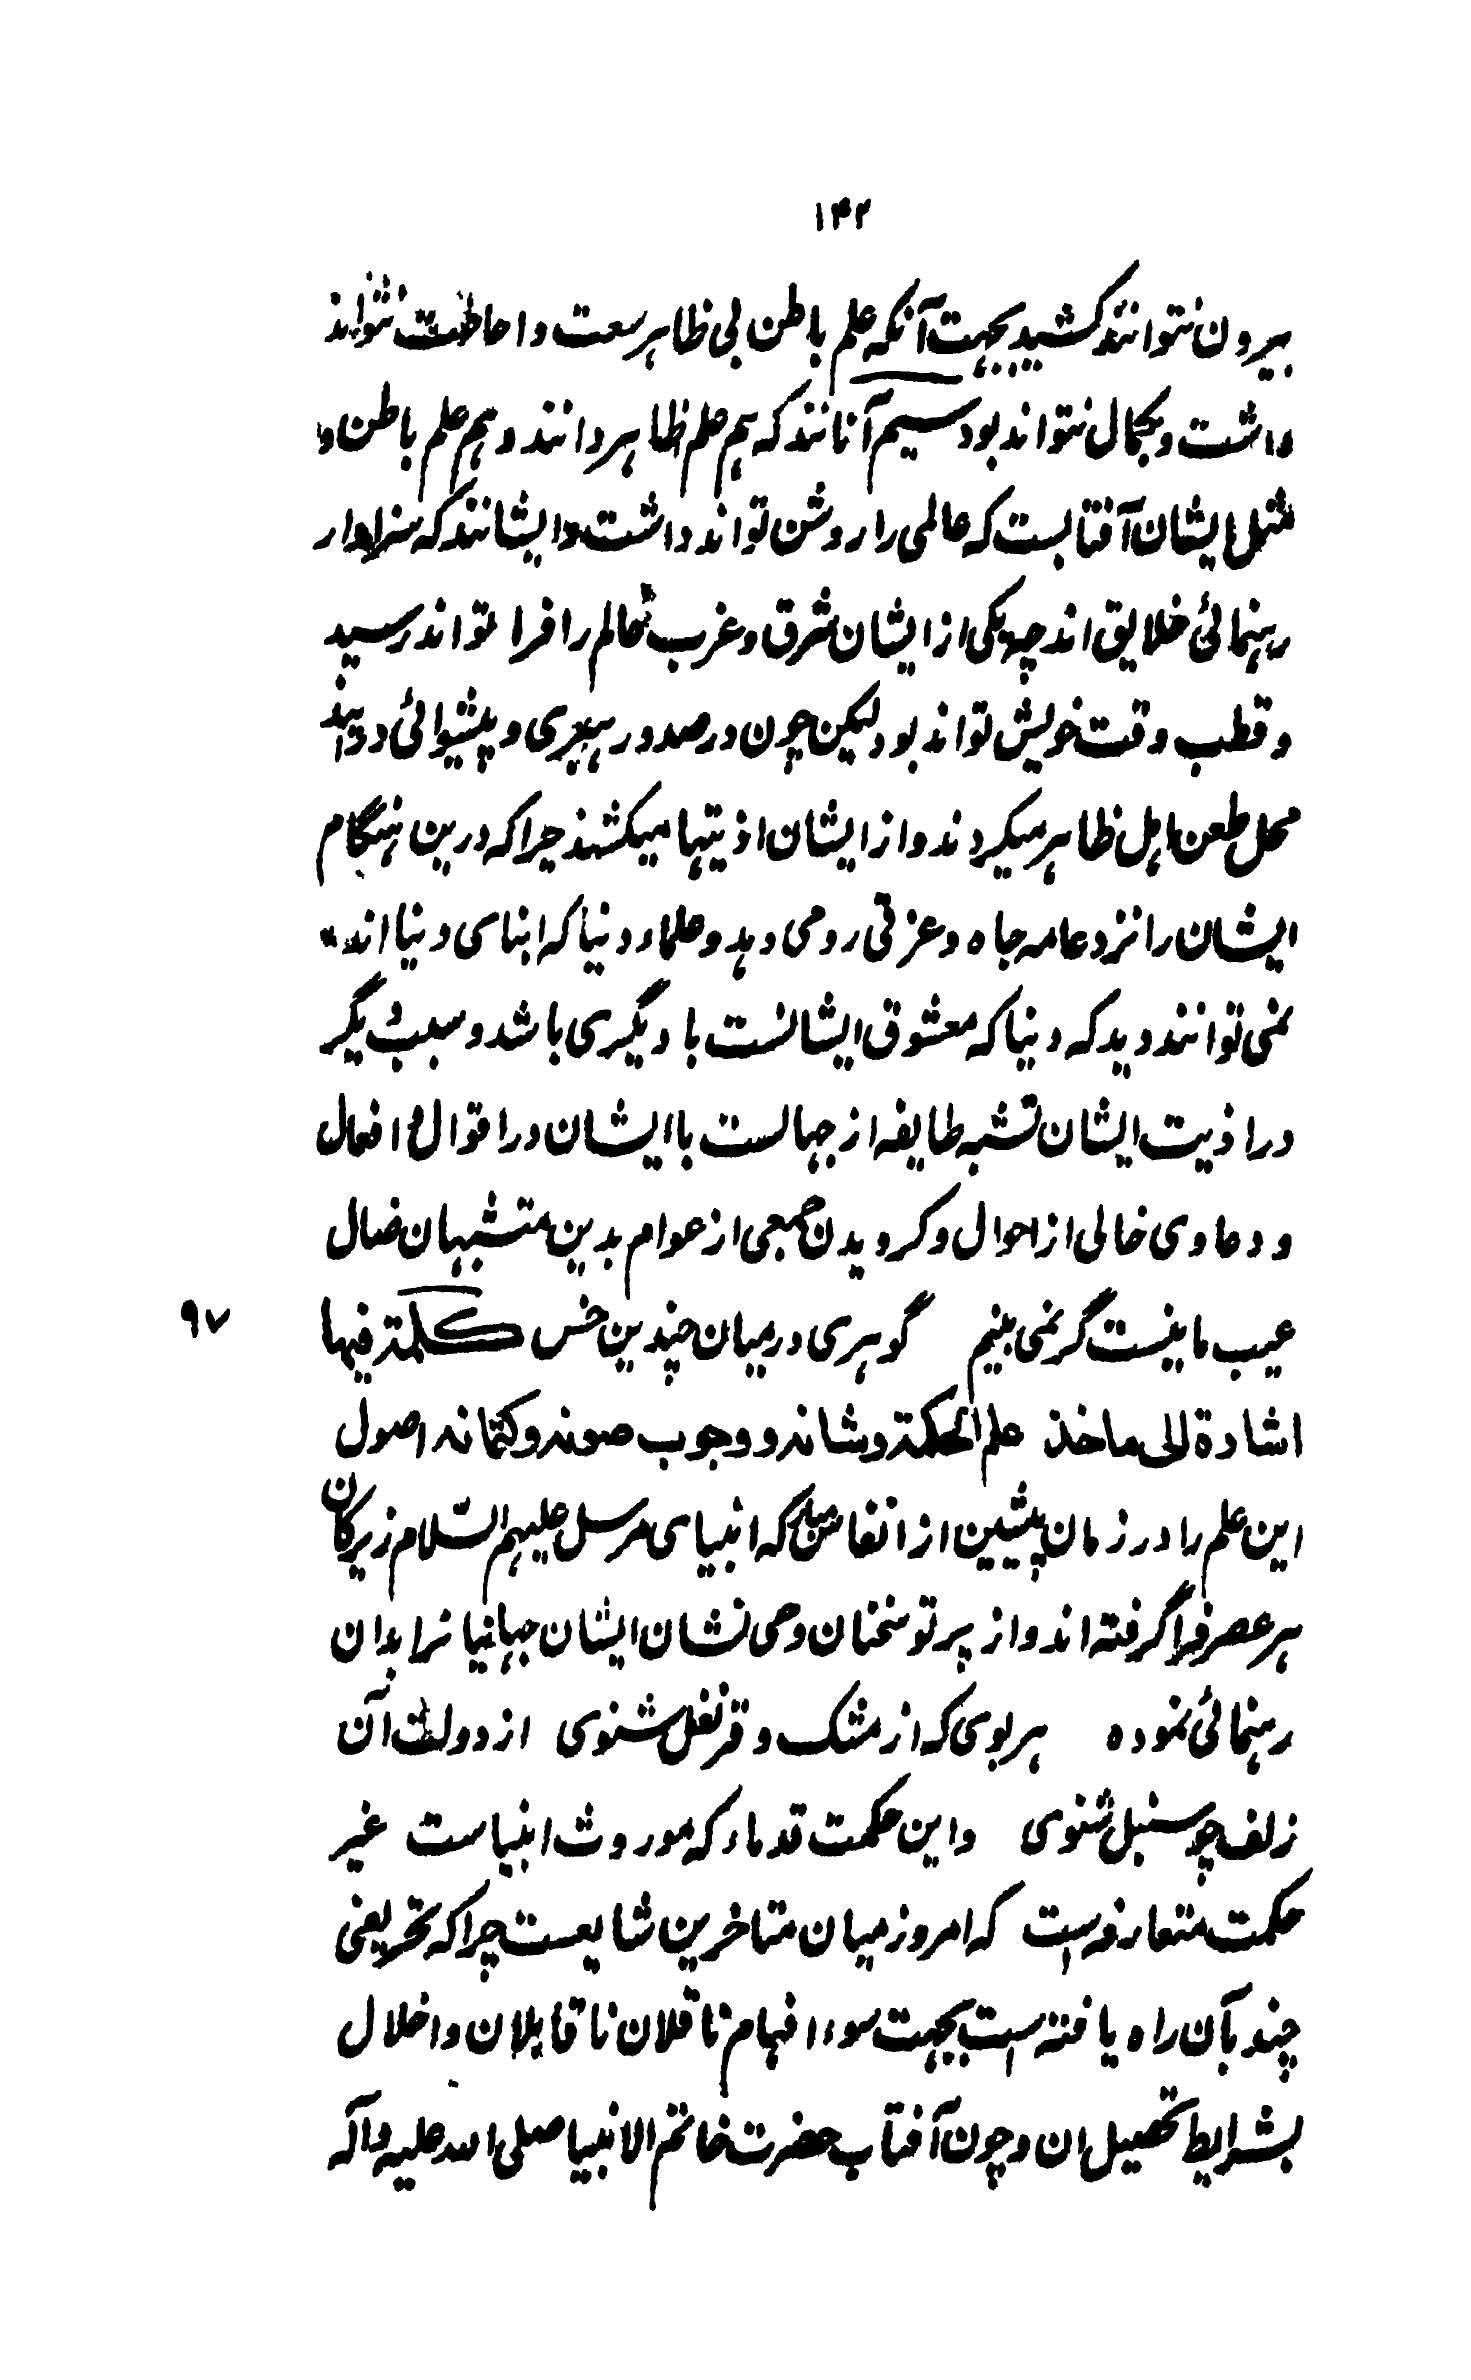 ۱۴۲
بیرون نتوانند کشید بجهت آنکه علم باطن بی ظاهر سعت و احاطت نتواند
داشت و بکمال نتواند بود سیم آنانند که هم علم ظاهر دانند و هم علم باطن و
مثل ایشان آفتابست که عالمی را روشن تواند داشت و ایشانند که سزاوار
رهنمائی خلایق اند چه یکی از ایشان شرق و غرب عالم را فرا تواند رسید
و قطب وقت خویش تواند بود لیکن چون در صدد رهبری و پیشوائی درآیند
محل طعن اهل ظاهر میگردند و از ایشان اذیتها میکشند چرا که درین هنگام
ایشان را نزد عامه جاه و عزتی رو می دهد و علماء دنیا که ابنای دنیا اند
نمی توانند دید که دنیا که معشوق ایشانست با دیگری باشد و سبب دیگر
در اذیت ایشان تشبه طایفه از جهالست با ایشان در اقوال و افعال
و دعاوی خالی از احوال و کرویدن جمعی از عوام بدین متشبهان ضال
عیب ما نیست گر نمی بینیم گوهری در میان چندین خس کلمة فیها
۹۷
اشادة الی ماخذ علم الحکمة و شانه و وجوب صونه و کتمانه اصول
این علم را در زمان پیشین از انفاس مبارکه انبیای مرسل علیهم السّلام زیرکان
هر عصر فرا گرفته اند و از پرتو سخنان وحی نشان ایشان جهانیانرا بدان
رهنمائی نموده هر بوی که از مشک و قرنفل شنوی از دولت آن
زلف چو سنبل شنوی و این حکمت قدماء که موروث انبیاست غیر
حکمت متعارفه است که امروز میان متاخرین شایعست چرا که تحریفی
چند بآن راه یافته است بجهت سوء افهام ناقلان ناقابلان و اخلال
بشرایط تحصیل ان و چون آفتاب حضرت خاتم الانبیا صلی الله علیه و آله